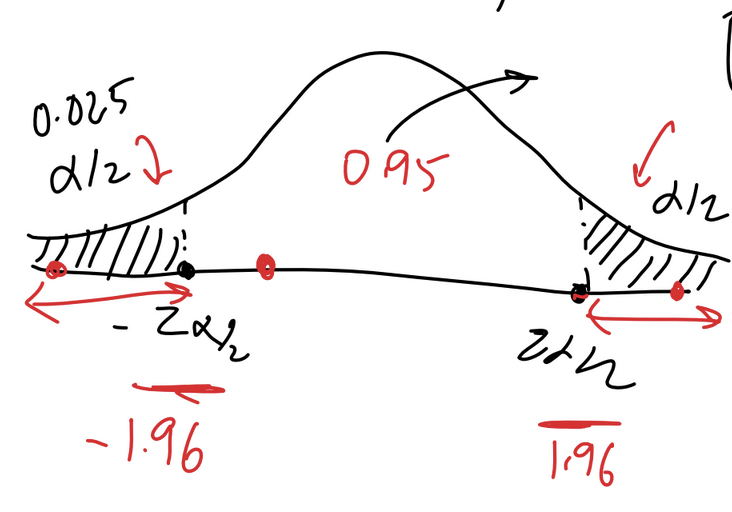 0.025
α/2
0.95
α/2
- Zα/2
Zα/2
-1.96
1.96